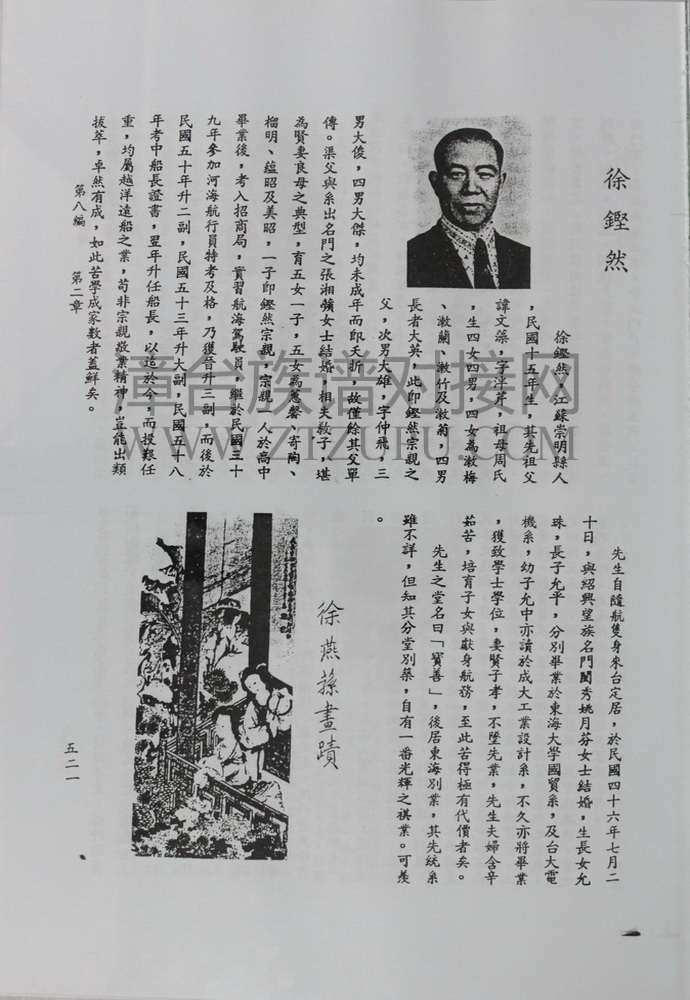 徐鏗然
徐鏗然，江蘇崇明縣人
，民國十五年生，其先祖父
諱文藻，字洋芹，祖母周氏
，生四女四男，四女為漱梅
、漱蘭、漱竹及漱菊，四男
長者大英，此即鏗然宗親之
父，次男大雄，字仲飛，三
男大俊，四男大傑，均未成年而即夭折，故僅餘其父單
傳。渠父與系出名門之張湘蘋女士結婚，相夫教子，堪
為賢妻良母之典型，育五女一子，五女為蕙馨、寄陶、
榴明、蘊昭及美昭，一子即鏗然宗親，宗親一人於高中
畢業後，考入招商局，實習航海駕駛員，繼於民國三十
九年參加河海航行員特考及格，乃獲晉升三副，而後於
民國五十年升二副，民國五十三年升大副，民國五十八
年考中船長證書，翌年升任船長，以迄於今，而授艱任
重，均屬越洋遠船之業，苟非宗親敬業精神，豈能出類
拔萃，卓然有成，如此苦學成家數者蓋鮮矣。
第八編 第二章
先生自隨航隻身來台定居，於民國四十六年七月二
十日，與紹興望族名門閨秀姚月芬女士結婚，生長女允
珠，長子允平，分別畢業於東海大學國貿系，及台大電
機系，幼子允中亦讀於成大工業設計系，不久亦將畢業
，獲致學士學位，妻賢子孝，不墜先業，先生夫婦含辛
茹苦，培育子女與獻身航務，至此苦得極有代價者矣。
先生之堂名曰「寶善」，後居東海別業，其先統系
雖不詳，但知其分堂別築，自有一番光輝之祺業。可羨
。
徐燕蓀畫蹟
五二一
漳台族谱对接网
WWW.ZTZUPU.COM